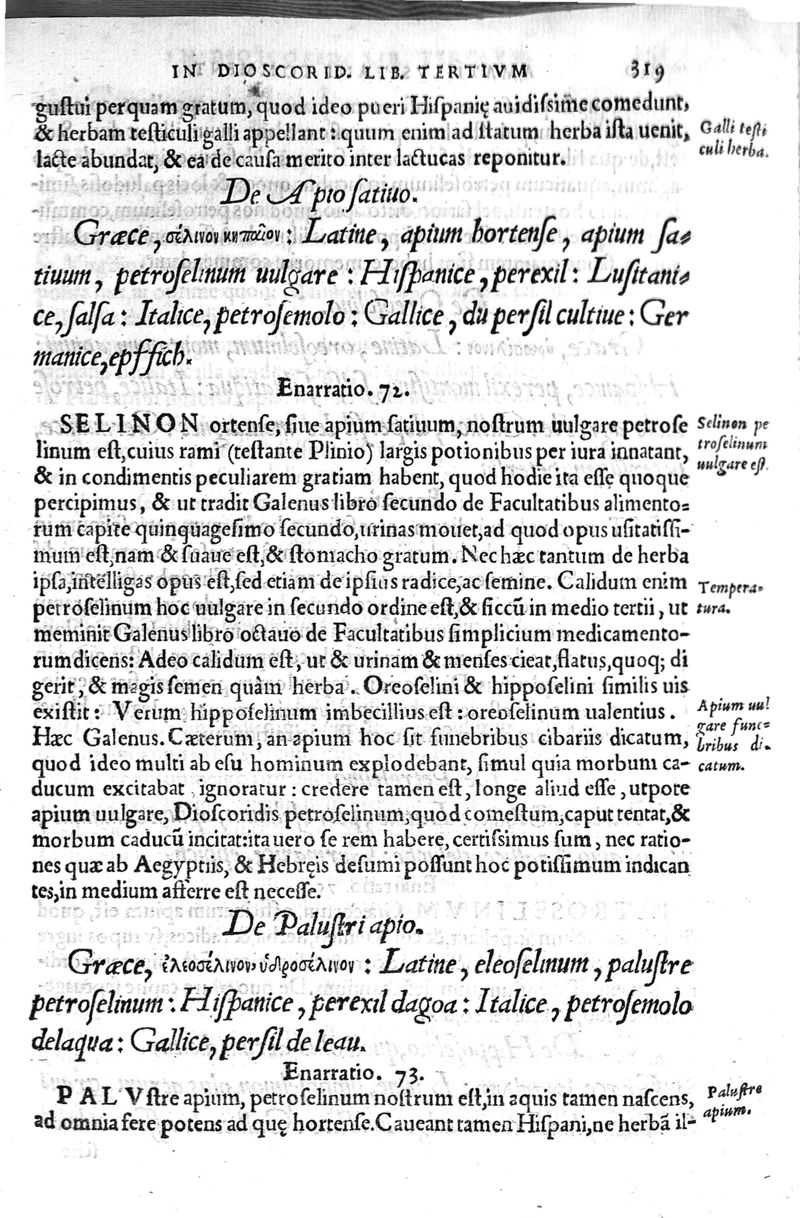 IN DIOSCORID. LIB. TERTIVM 319
gustui perquam gratum, quod ideo pueri Hispanię auidissime comedunt,
& herbam testiculi galli appellant : quum enim ad statum herba ista uenit,
lacte abundat, & ea de causa merito inter lactucas reponitur.
Galli testi
culi herba.
De Apio satiuo.
Græce, σέλινον κηπαῖον : Latine, apium hortense, apium sa-
tiuum, petroselinum uulgare : Hispanice, perexil : Lusitani-
ce, salsa : Italice, petrosemolo : Gallice, du persil cultiue : Ger
manice, epffich.
Enarratio. 72.
SELINON ortense, siue apium satiuum, nostrum uulgare petrose
linum est, cuius rami (testante Plinio) largis potionibus per iura innatant,
& in condimentis peculiarem gratiam habent, quod hodie ita esse quoque
percipimus, & ut tradit Galenus libro secundo de Facultatibus alimento-
rum capite quinquagesimo secundo, urinas mouet, ad quod opus usitatissi-
mum est, nam & suaue est, & stomacho gratum. Nec hæc tantum de herba
ipsa, intelligas opus est, sed etiam de ipsius radice, ac semine. Calidum enim
petroselinum hoc uulgare in secundo ordine est, & siccũ in medio tertii, ut
meminit Galenus libro octauo de Facultatibus simplicium medicamento-
rum dicens: Adeo calidum est, ut & urinam & menses cieat, flatus, quoq; di
gerit, & magis semen quâm herba. Oreoselini & hipposelini similis uis
existit : Verum hipposelinum imbecillius est : oreoselinum ualentius.
Hæc Galenus. Cæterum, an apium hoc sit funebribus cibariis dicatum,
quod ideo multi ab esu hominum explodebant, simul quia morbum ca-
ducum excitabat, ignoratur : credere tamen est, longe aliud esse, utpote
apium uulgare, Dioscoridis petroselinum, quod comestum, caput tentat, &
morbum caducũ incitat: ita uero se rem habere, certissimus sum, nec ratio-
nes quæ ab Aegyptiis, & Hebręis desumi possunt hoc potissimum indican
tes, in medium afferre est necesse.
Selinon pe
troselinum
uulgare est.
Tempera-
tura.
Apium uul
gare fune-
bribus di-
catum.
De Palustri apio.
Græce, ἐλεοσέλινον, ὑδροσέλινον : Latine, eleoselinum, palustre
petroselinum : Hispanice, perexil dagoa : Italice, petrosemolo
delaqua : Gallice, persil de leau.
Enarratio. 73.
PALVstre apium, petroselinum nostrum est, in aquis tamen nascens,
ad omnia fere potens ad quę hortense. Caueant tamen Hispani, ne herbã il-
Palustre
apium.